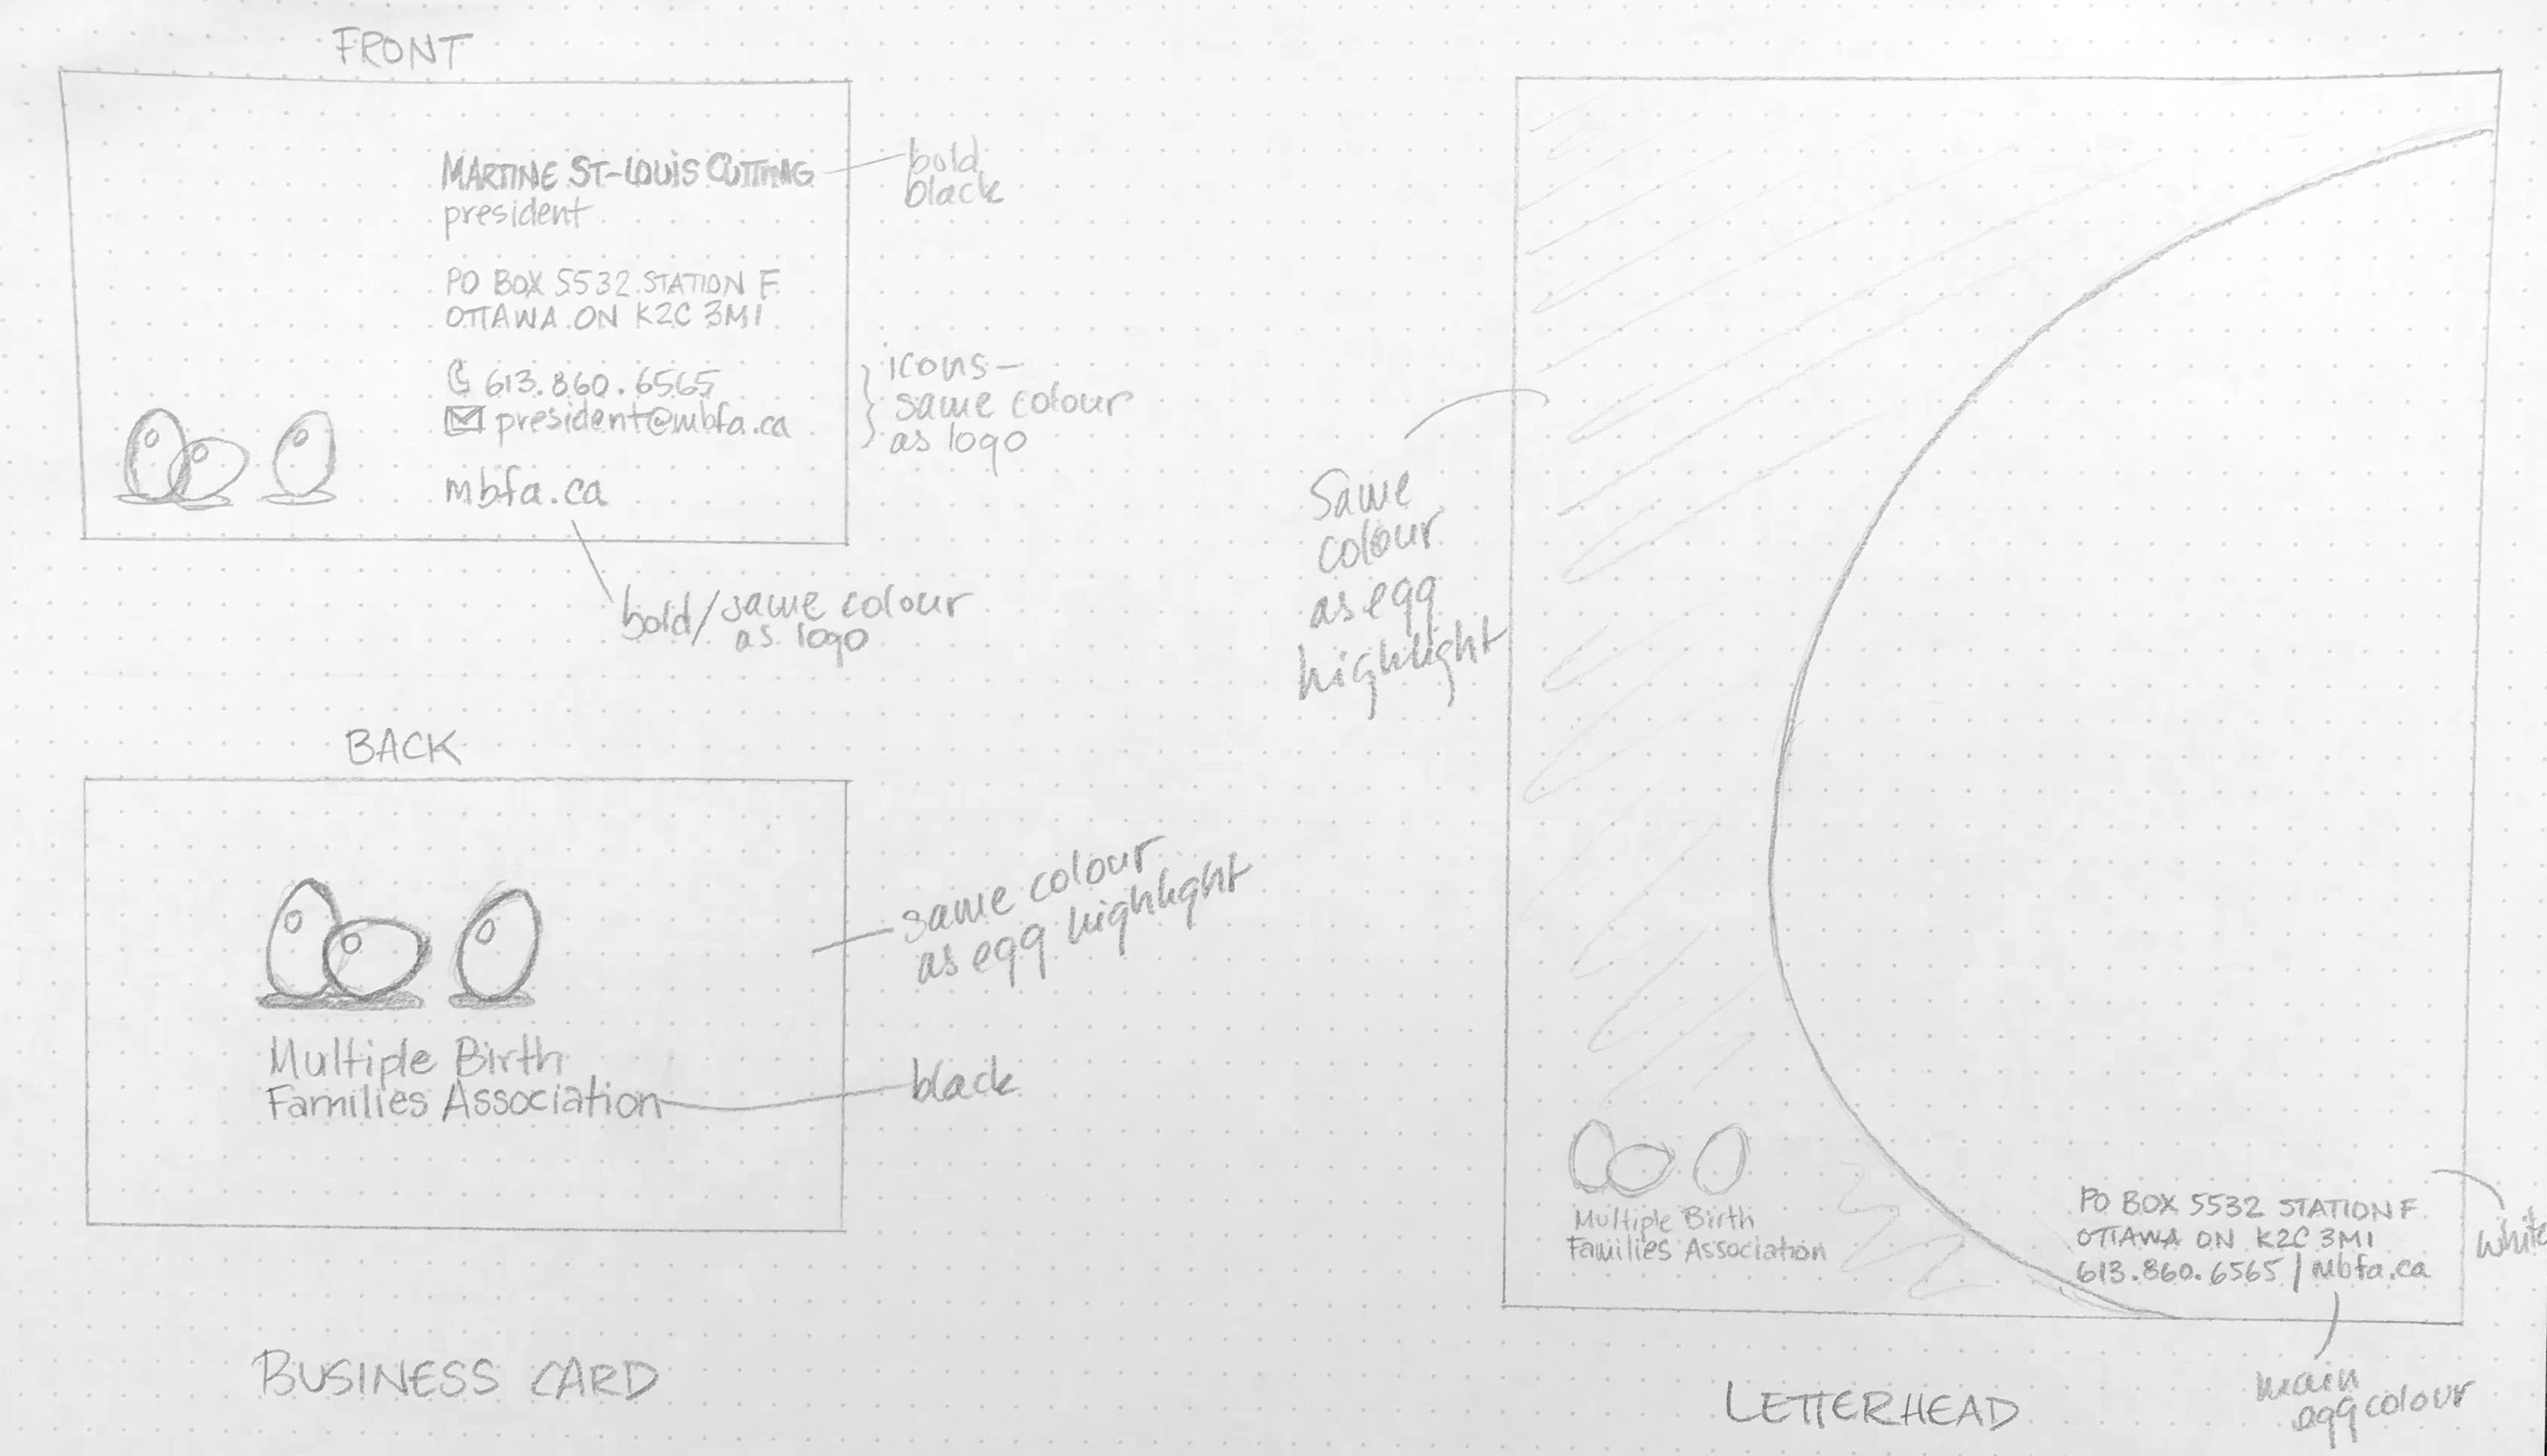 FRONT
MARTINE ST-LOUIS CUTTING
president
PO BOX 5532 STATION F
OTTAWA ON K2C 3M1
613.860.6565
president@mbfa.ca
mbfa.ca
bold
black
icons-
same colour
as logo
bold/same colour
as logo
BACK
Multiple Birth
Families Association
same colour
as egg highlight
black
BUSINESS CARD
Same
colour
as egg
highlight
Multiple Birth
Families Association
PO BOX 5532 STATION F
OTTAWA ON K2C 3M1
613.860.6565 | mbfa.ca
white
main
egg colour
LETTERHEAD